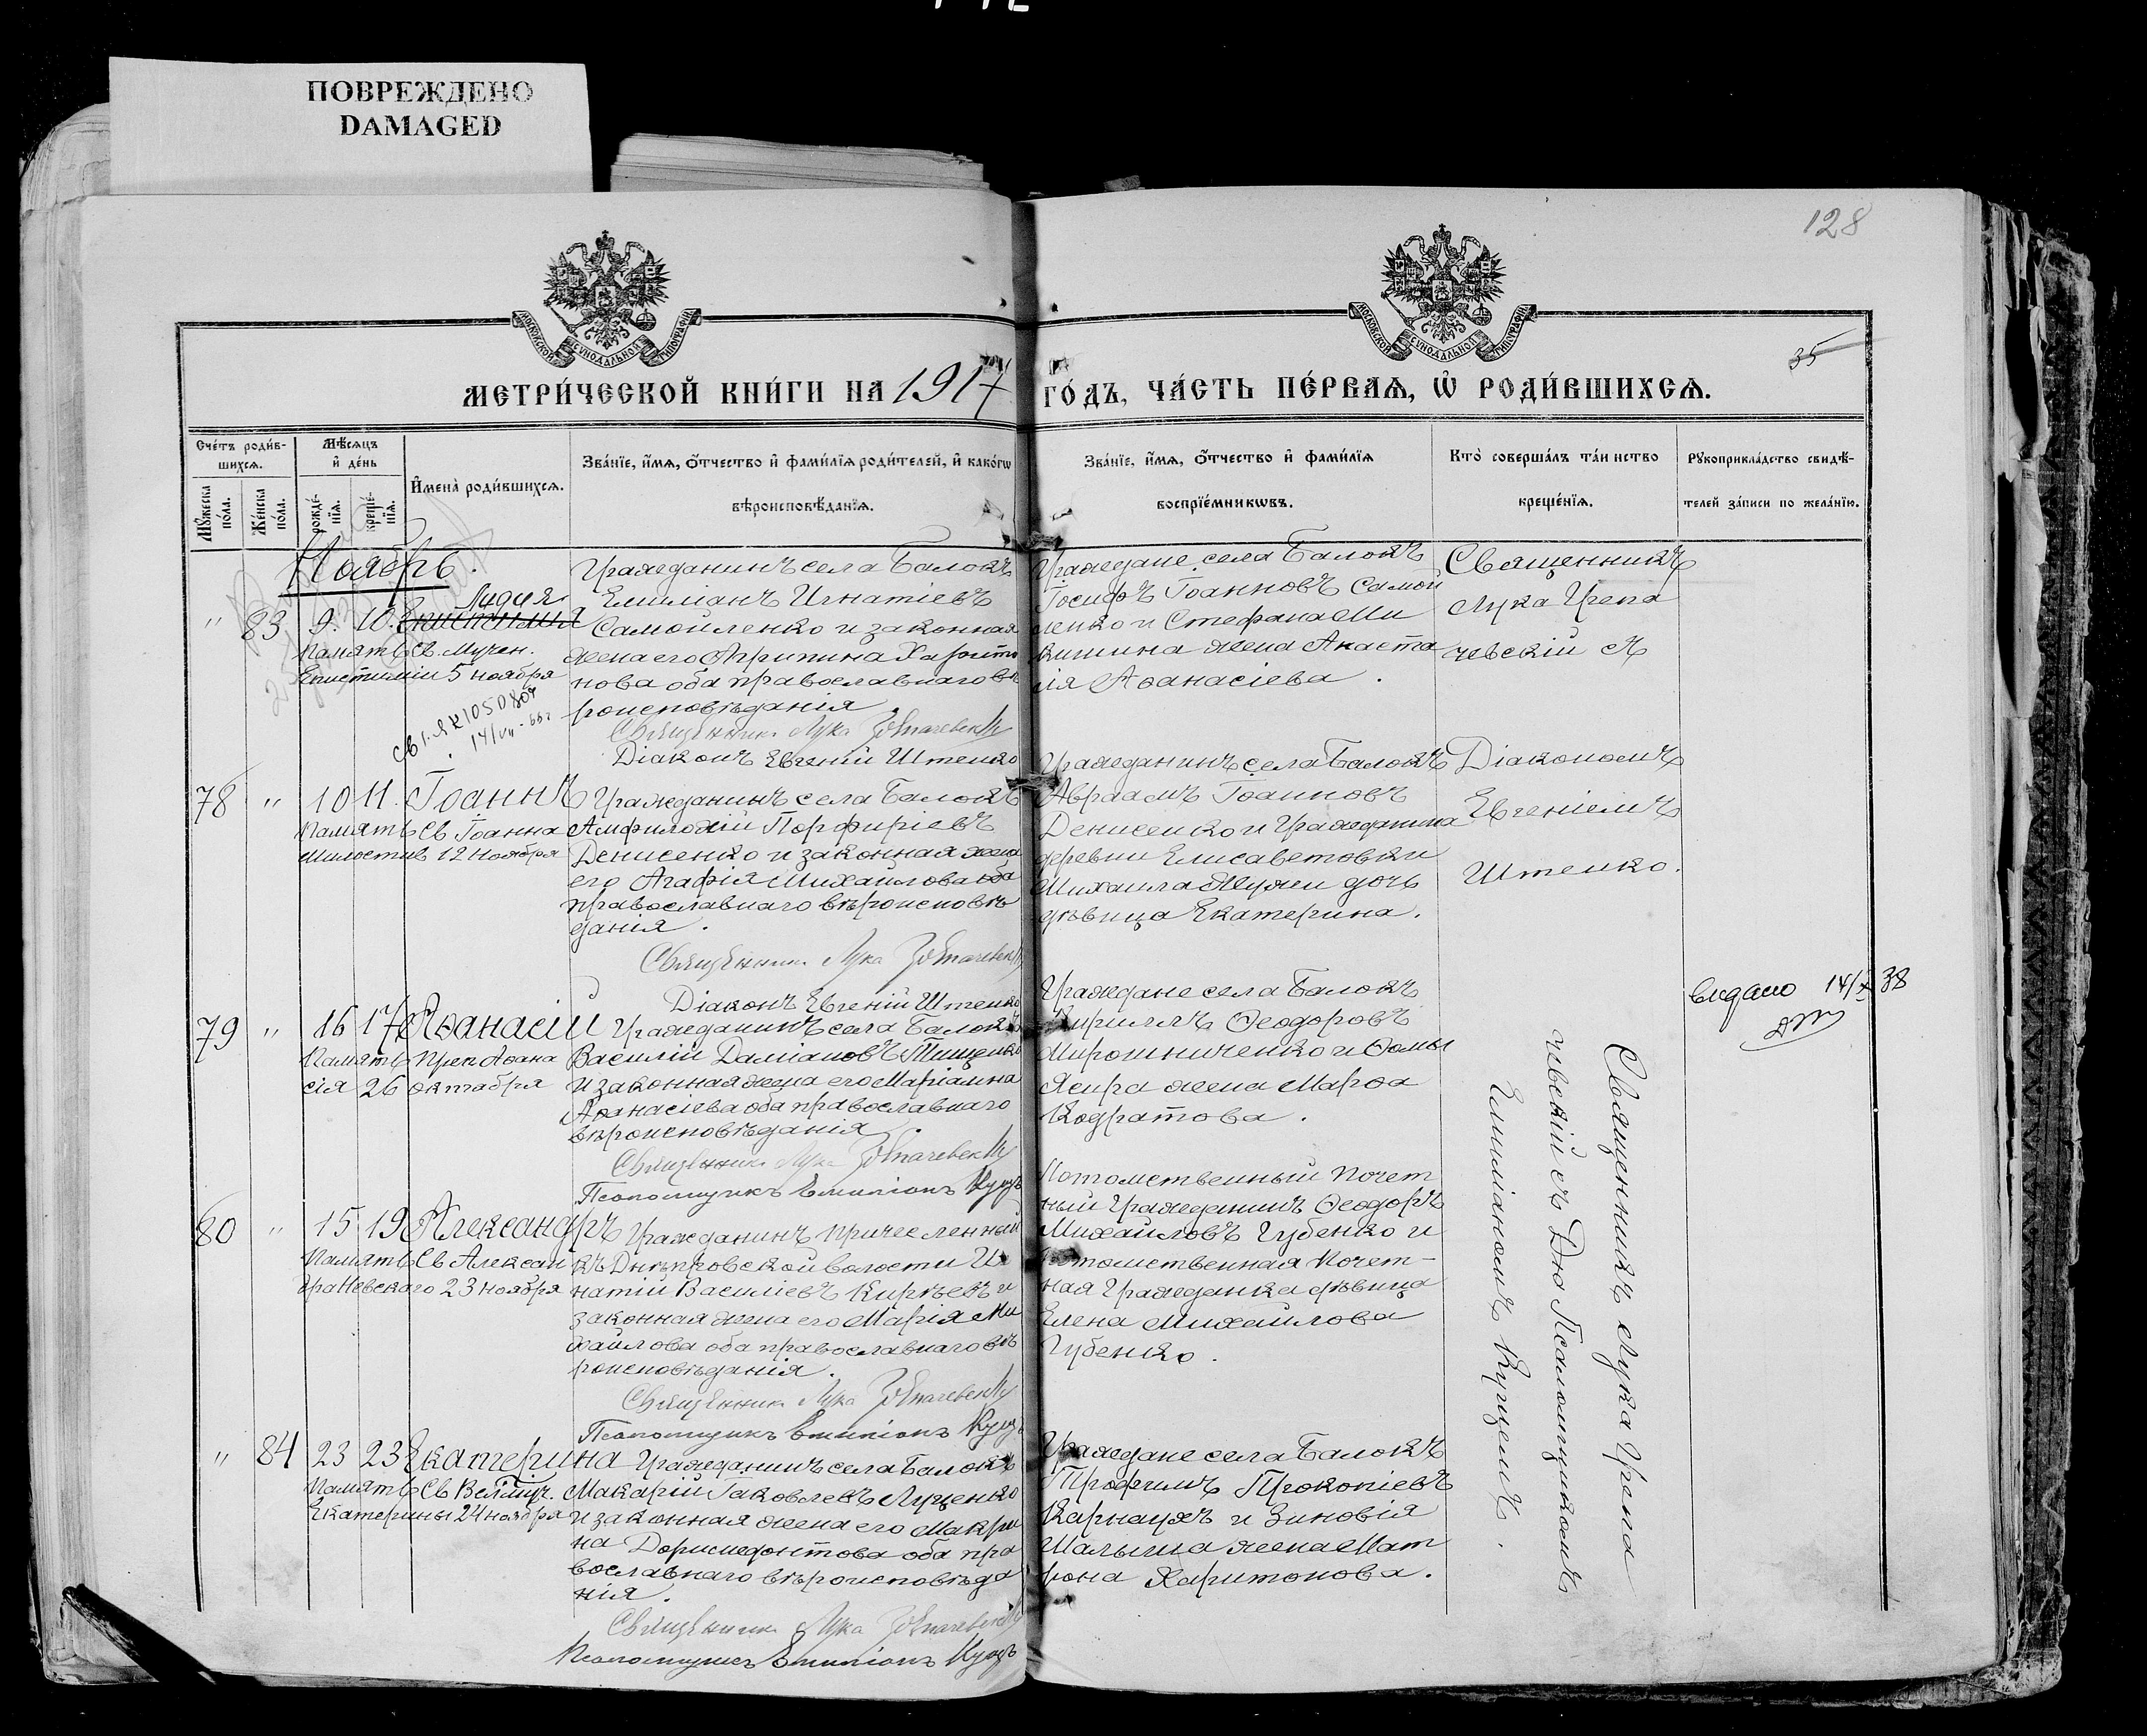 ПОВРЕЖДЕНО
DAMAGED
128
МОСКОВСКОЙ СѴНОДАЛЬНОЙ ТИПОГРАФІИ
МОСКОВСКОЙ СѴНОДАЛЬНОЙ ТИПОГРАФІИ
35
МЕТРИ́ЧЕСКОЙ КНИ́ГИ НА 1917 ГО́ДЪ, ЧА́СТЬ ПЕ́РВАЯ, Ѡ҆ РОДИ́ВШИХСЯ.
Сче́тъ роди́в-
шихся.
Мꙋ́жеска по́ла.
Же́нска по́ла.
Мѣ́сяцъ
и҆ де́нь
рожде́-
нїя.
креще́-
нїя.
И҆мена̀ роди́вшихся.
Зва́нїе, и҆́мя, ѻ҆́тчество и҆ фами́лїя роди́телей, и҆ како́гѡ
вѣроисповѣ́данїя.
Зва́нїе, и҆́мя, ѻ҆́тчество и҆ фами́лїя
воспрїе́мникѡвъ.
Кто̀ соверша́лъ та́инство
креще́нїя.
Рꙋкоприкла́дство свидѣ́-
телей за́писи по жела́нїю.
Ноябрь.
" 83 9. 10.
Лидия
Епистимія
Память Св. Мучен.
Епистиміи 5 ноября
Гражданинъ села Балокъ
Емиліанъ Игнатіевъ
Самойленко и законная
жена его Агрипина Харито
нова оба православнаго вѣ
роисповѣданія.
Священникъ Лука
Діаконъ Евгеній Штенко
Граждане села Балокъ
Іосифъ Іоанновъ Самой
ленко и Стефана Ми
жена Анаста
сія Аѳанасіева.
Священникъ
Лука Грепа
чевскій
78 " 10 11. Іоаннъ
Память Св Іоанна
Милостив 12 ноября
Гражданинъ села Балокъ
Амфилохій Порфиріевъ
Денисенко и законная жена
его Агафія Михайлова оба
православнаго вѣроисповѣ
данія.
Священникъ Лука
Діаконъ Евгеній Штенко
Гражданинъ села Балокъ
Авраамъ Іоанновъ
Денисенко и Гражданина
деревни Елисаветовки
Михаила дочь
дѣвица Екатерина.
Діакономъ
Евгеніемъ
Штенко.
79 " 16 17 Аѳанасій
Память Преп Аѳана
сія 26 октября
Гражданинъ села Балокъ
Василій Даміановъ Тищенко
и законная жена его Маріамна
Аѳанасіева оба православнаго
вѣроисповѣданія.
Священникъ Лука
Псаломщикъ Емиліанъ Куцъ
Граждане села Балокъ
Кириллъ Ѳеодоровъ
Мирошниченко и Ѳомы
жена Марѳа
Кодратова.
Видано 14/X 38
80 " 15 19 Александръ
Память Св Алексан
дра Невскаго 23 ноября
Гражданинъ причисленный
къ Днѣпровской волости Иг
натій Василіевъ Кирѣевъ и
законная жена его Марія Ми
хайлова оба православнаго вѣ
роисповѣданія.
Священникъ Лука
Псаломщикъ Емиліанъ Куцъ
Потомственный Почет
ный Гражданинъ Ѳеодоръ
Михайловъ Губенко и
Потомственная Почет-
ная Гражданка дѣвица
Елена Михайлова
Губенко.
Священникъ Лука Грепа
чевскій съ Псаломщикомъ
Емиліаномъ Куцемъ.
" 84 23 23 Екатерина
Память Св Велмуч.
Екатерины 24 ноября
Гражданинъ села Балокъ
Макарій Іаковлевъ Луценко
и законная жена его Макри
на Доримедонтова оба пра
вославнаго вѣроисповѣда
нія.
Священникъ Лука
Псаломщикъ Емиліанъ Куцъ
Граждане села Балокъ
Трофимъ Прокопіевъ
Карнаухъ и Зиновія
жена Мат
рона Харитонова.